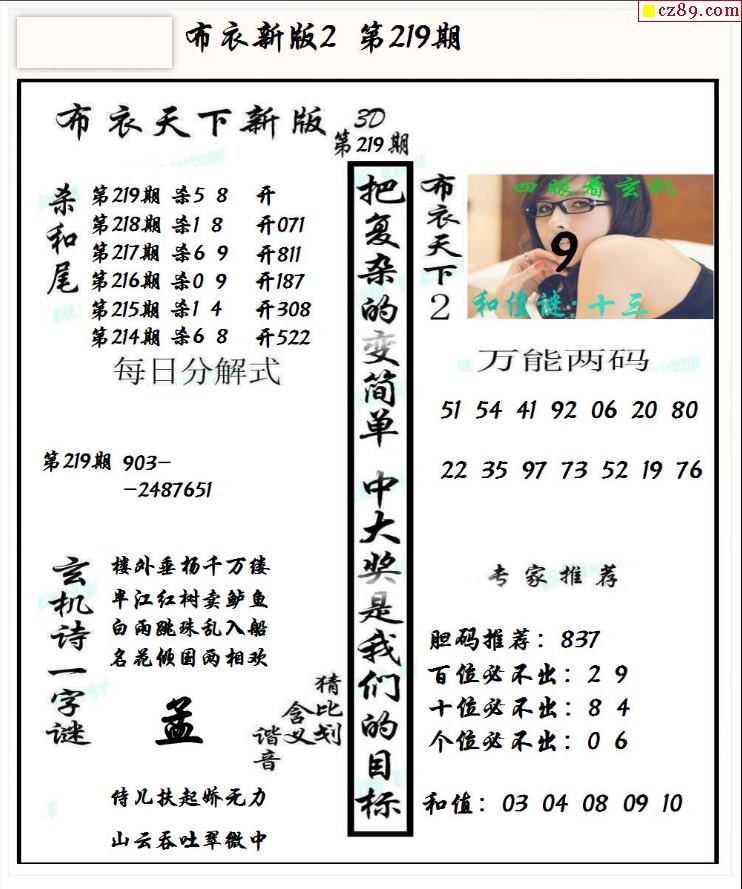 cz89.com
布衣新版2 第219期
布衣天下新版 3D
第219期
杀和尾
第219期 杀5 8 开
第218期 杀1 8 开071
第217期 杀6 9 开811
第216期 杀0 9 开187
第215期 杀1 4 开308
第214期 杀6 8 开522
每日分解式
第219期 903-
-2487651
玄机诗一字谜
楼外垂杨千万缕
半江红树卖鲈鱼
白雨跳珠乱入船
名花倾国两相欢
孟
猜比划
含义
谐音
侍儿扶起娇无力
山云吞吐翠微中
把复杂的变简单 中大奖是我们的目标
布衣天下2
四眼看玄机
9
和值谜:十三
万能两码
51 54 41 92 06 20 80
22 35 97 73 52 19 76
专家推荐
胆码推荐：837
百位必不出：2 9
十位必不出：8 4
个位必不出：0 6
和值：03 04 08 09 10